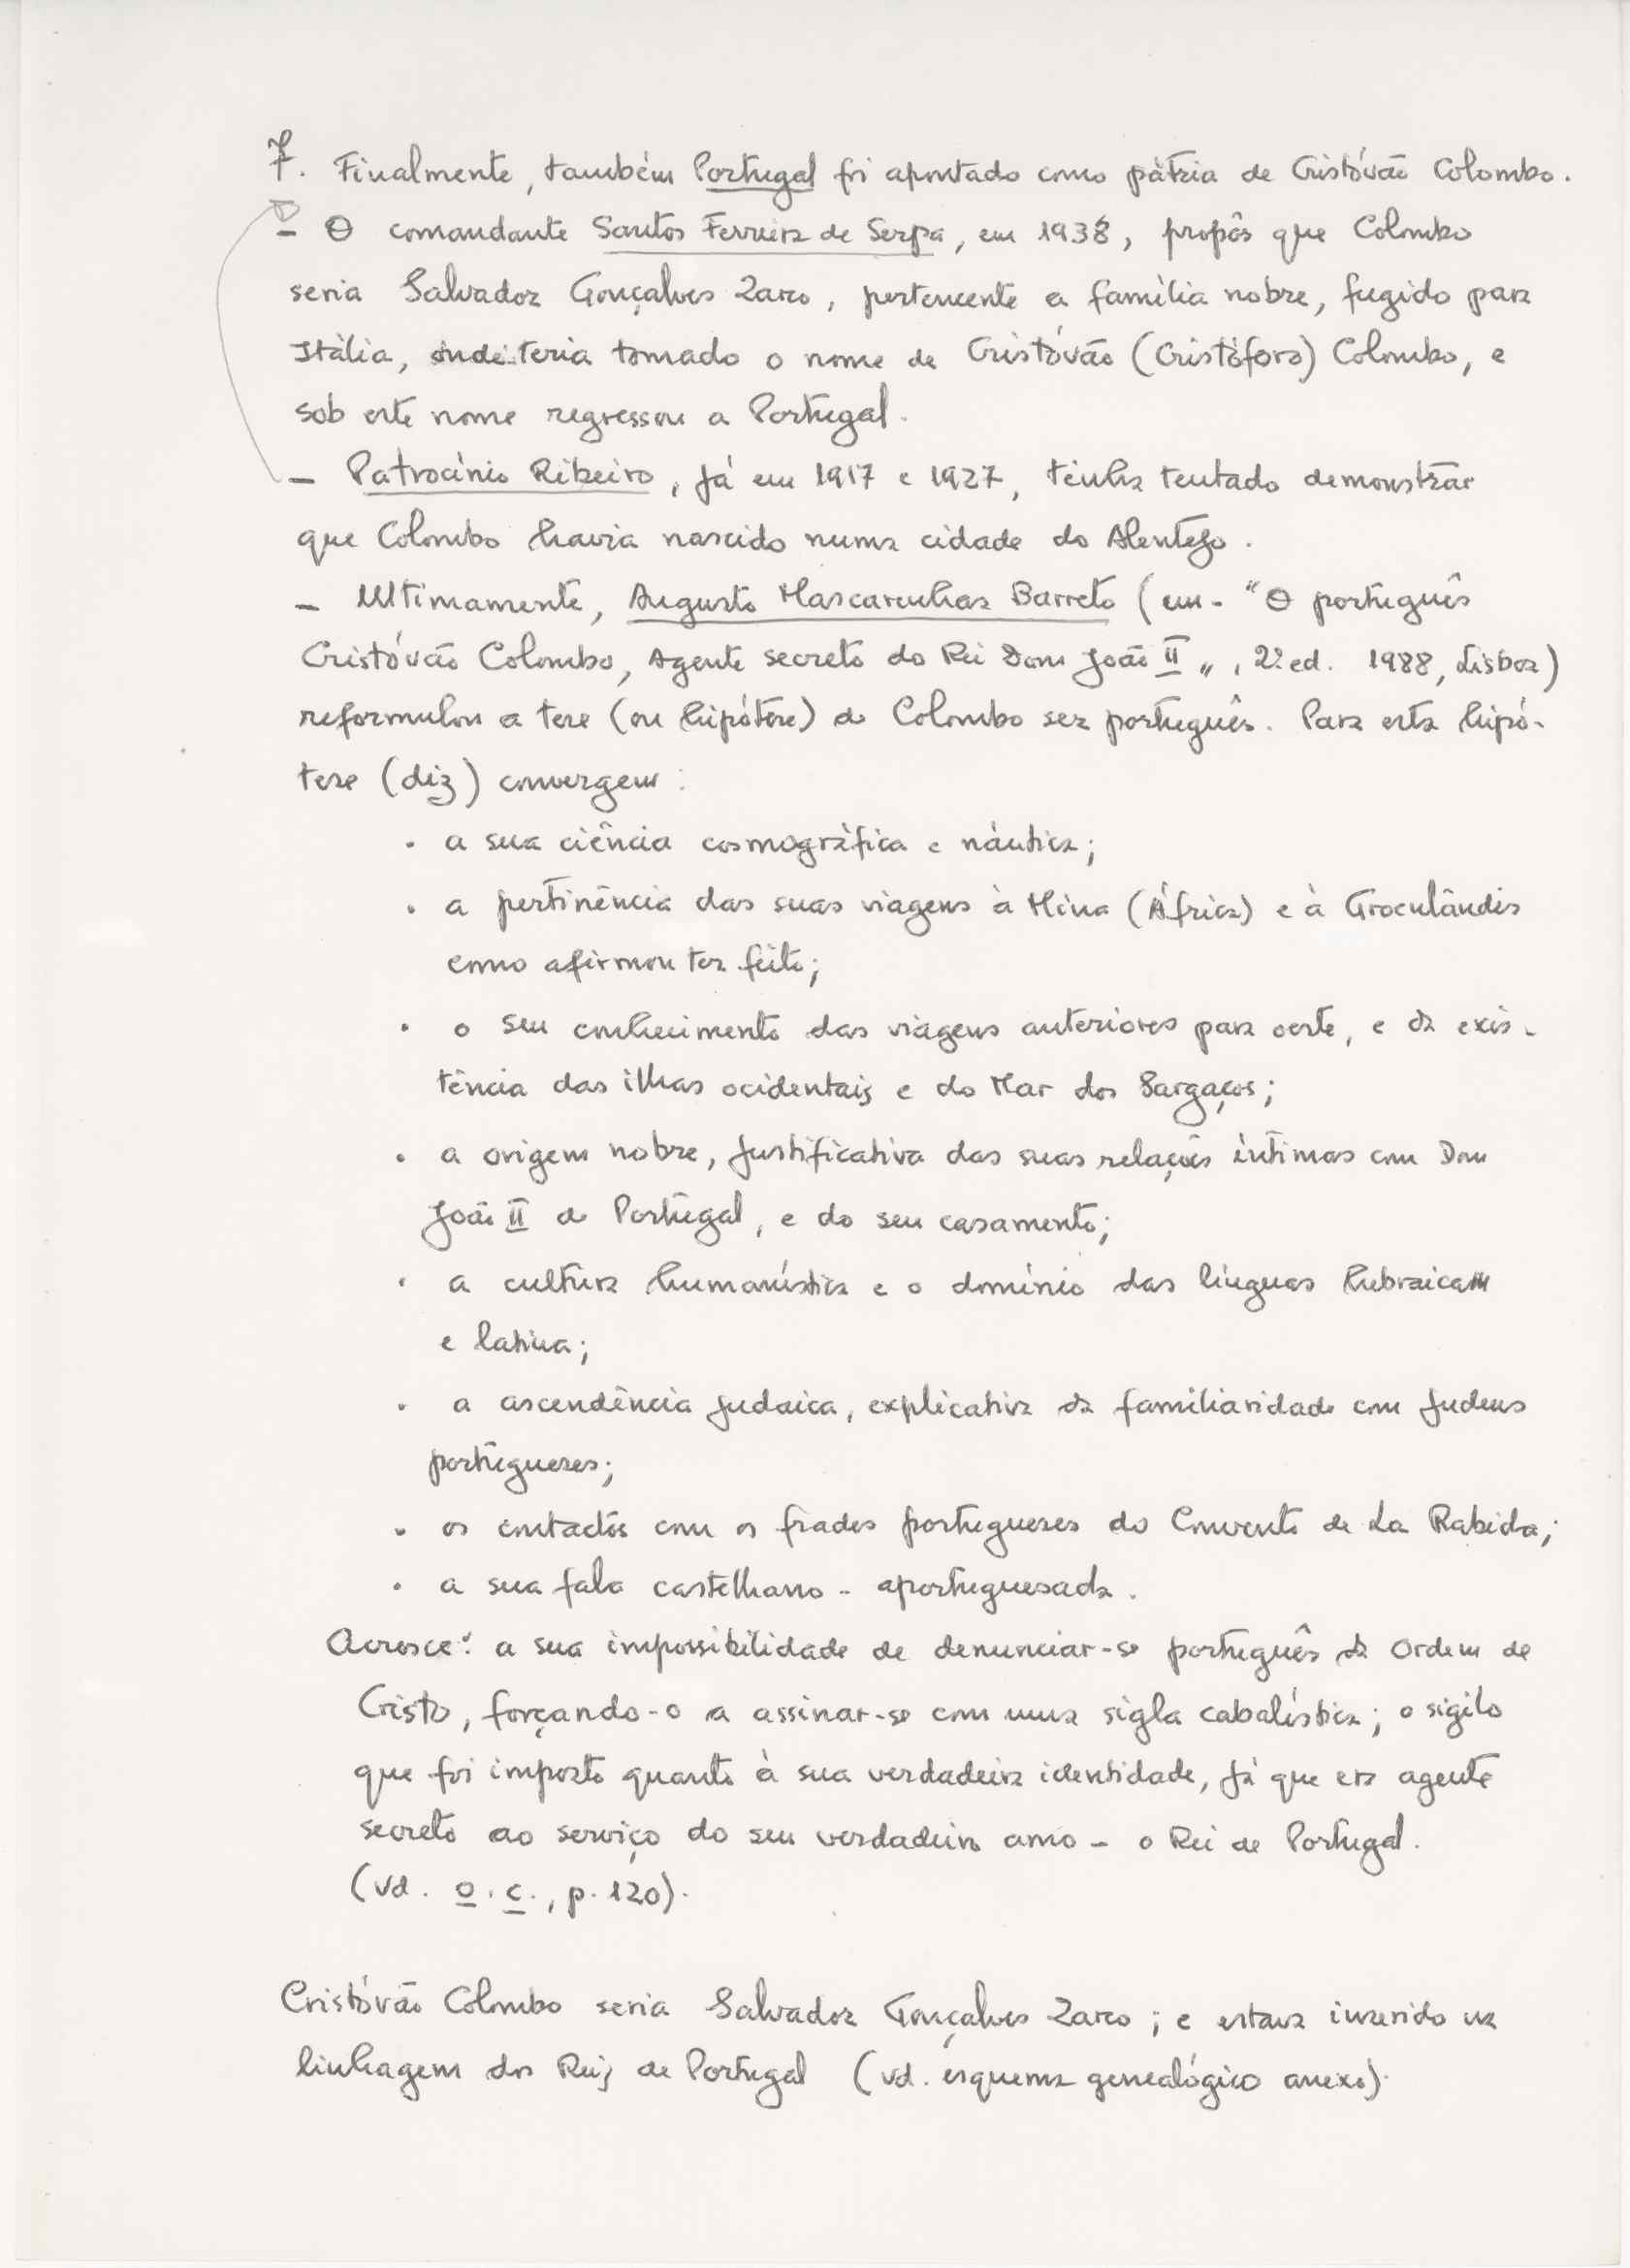 7. Finalmente, também Portugal foi apontado como pátria de Cristóvão Colombo.
– O comandante Santos Ferreira de Serpa, em 1938, propôs que Colombo
seria Salvador Gonçalves Zarco, pertencente a família nobre, fugido para
Itália, onde teria tomado o nome de Cristóvão (Cristóforo) Colombo, e
sob este nome regressou a Portugal.
– Patrocínio Ribeiro, já em 1917 e 1927, tinha tentado demonstrar
que Colombo havia nascido numa cidade do Alentejo.
– Ultimamente, Augusto Mascarenhas Barreto (em - "O português
Cristóvão Colombo, Agente secreto do Rei Dom João II", 2ª ed. 1988, Lisboa)
reformulou a tese (ou hipótese) de Colombo ser português. Para esta hipó-
tese (diz) convergem:
. a sua ciência cosmográfica e náutica;
. a pertinência das suas viagens à Mina (África) e à Groenlândia
como afirmou ter feito;
. o seu conhecimento das viagens anteriores para oeste, e da exis-
tência das ilhas ocidentais e do Mar dos Sargaços;
. a origem nobre, justificativa das suas relações íntimas com Dom
João II de Portugal, e do seu casamento;
. a cultura humanística e o domínio das línguas hebraica
e latina;
. a ascendência judaica, explicativa da familiaridade com judeus
portugueses;
. os contactos com os frades portugueses do Convento de La Rabida;
. a sua fala castelhano - aportuguesada.
Acresce: a sua impossibilidade de denunciar-se português da Ordem de
Cristo, forçando-o a assinar-se com uma sigla cabalística; o sigilo
que foi imposto quanto à sua verdadeira identidade, já que era agente
secreto ao serviço do seu verdadeiro amo – o Rei de Portugal.
(vd. o. c., p. 120).
Cristóvão Colombo seria Salvador Gonçalves Zarco; e estava inserido na
linhagem dos Reis de Portugal (vd. esquema genealógico anexo).